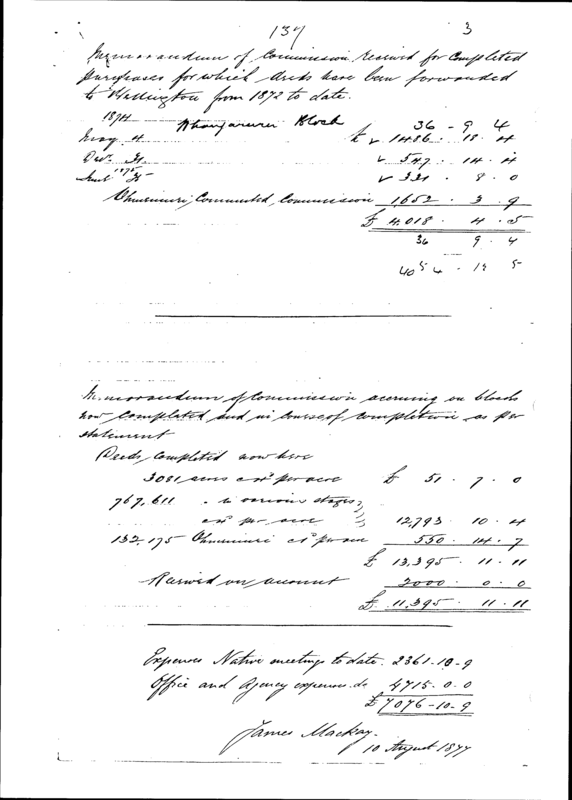 137 3
Memorandum of Commission received for Completed
purchases for which deeds have been forwarded
to Wellington from 1872 to date.
1874
Block 36 - 9 4
May 4 £ 1486 . 18 . 4
Decr 547 . 14 . 4
1875 331 . 8 . 0
Ohinemuri, Commuted, Commission 1,652 . 3 . 9
£ 4,018 . 4 . 5
36 9 . 4
4054 - 13 5
Memorandum of Commission accruing on blocks
now completed and in course of completion as per
statement
Deeds, completed now here
3081 acres @ 4d per acre £ 51 . 7 . 0
767,611 " in various stages
@ 4d per acre 12,793 . 10 . 4
132,175 Ohinemuri @ 1d per acre 550 . 14 . 7
£ 13,395 . 11 . 11
Received on account 2000 . 0 . 0
£ 11,395 . 11 . 11
Expenses Native meetings to date . 2361-10-9
Office and Agency expenses do 4715 . 0 . 0
£ 7076-10-9
James Mackay.
10 August 1877